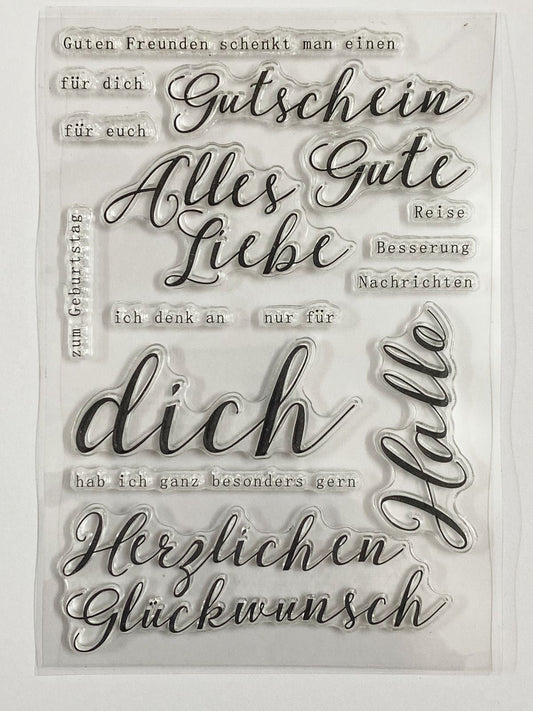 Guten Freunden schenkt man einen
für dich
Gutschein
für euch
Alles
Gute
Liebe
Reise
Besserung
Nachrichten
zum Geburtstag
ich denk an
nur für
dich
Halle
hab ich ganz besonders gern
Herzlichen
Glückwunsch